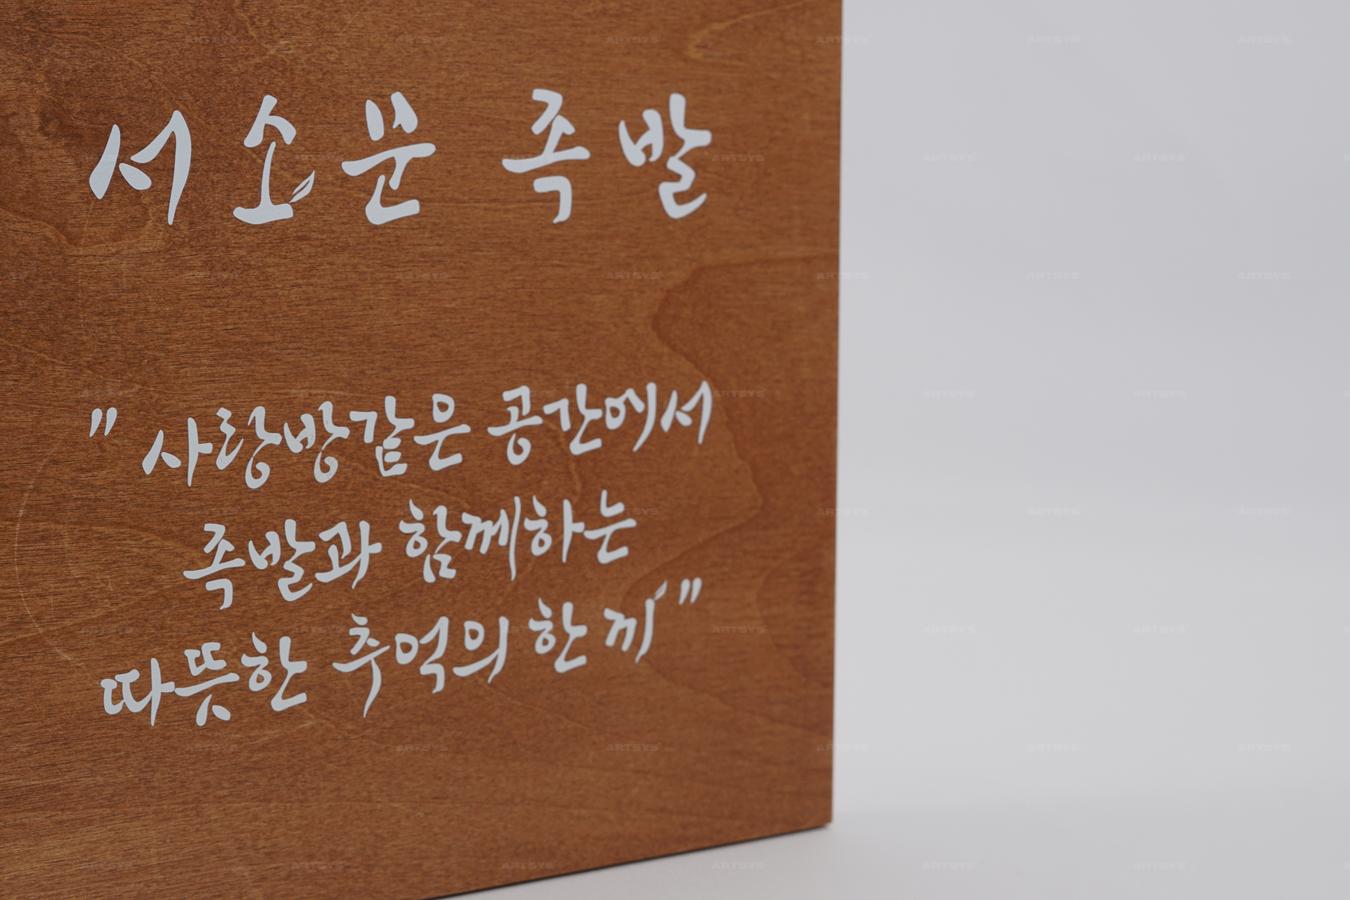 서소문 족발
"사랑방같은 공간에서
족발과 함께하는
따뜻한 추억의 한 끼"
ARTSYS